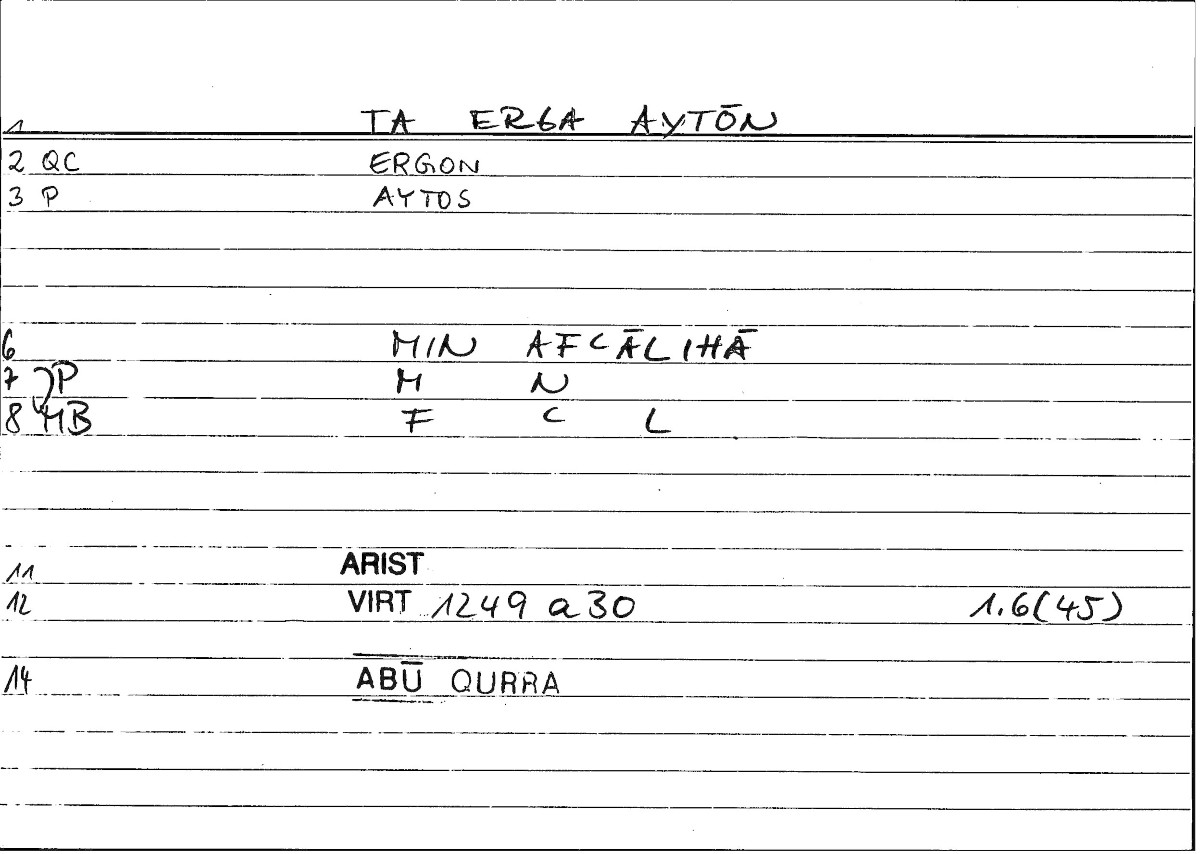 1 TA ERGA AYTŌN
2 QC ERGON
3 P AYTOS
6 MIN AFCĀLIHĀ
7 P M N
8 MB F C L
11 ARIST
12 VIRT 1249 a 30 1.6(45)
14 ABŪ QURRA